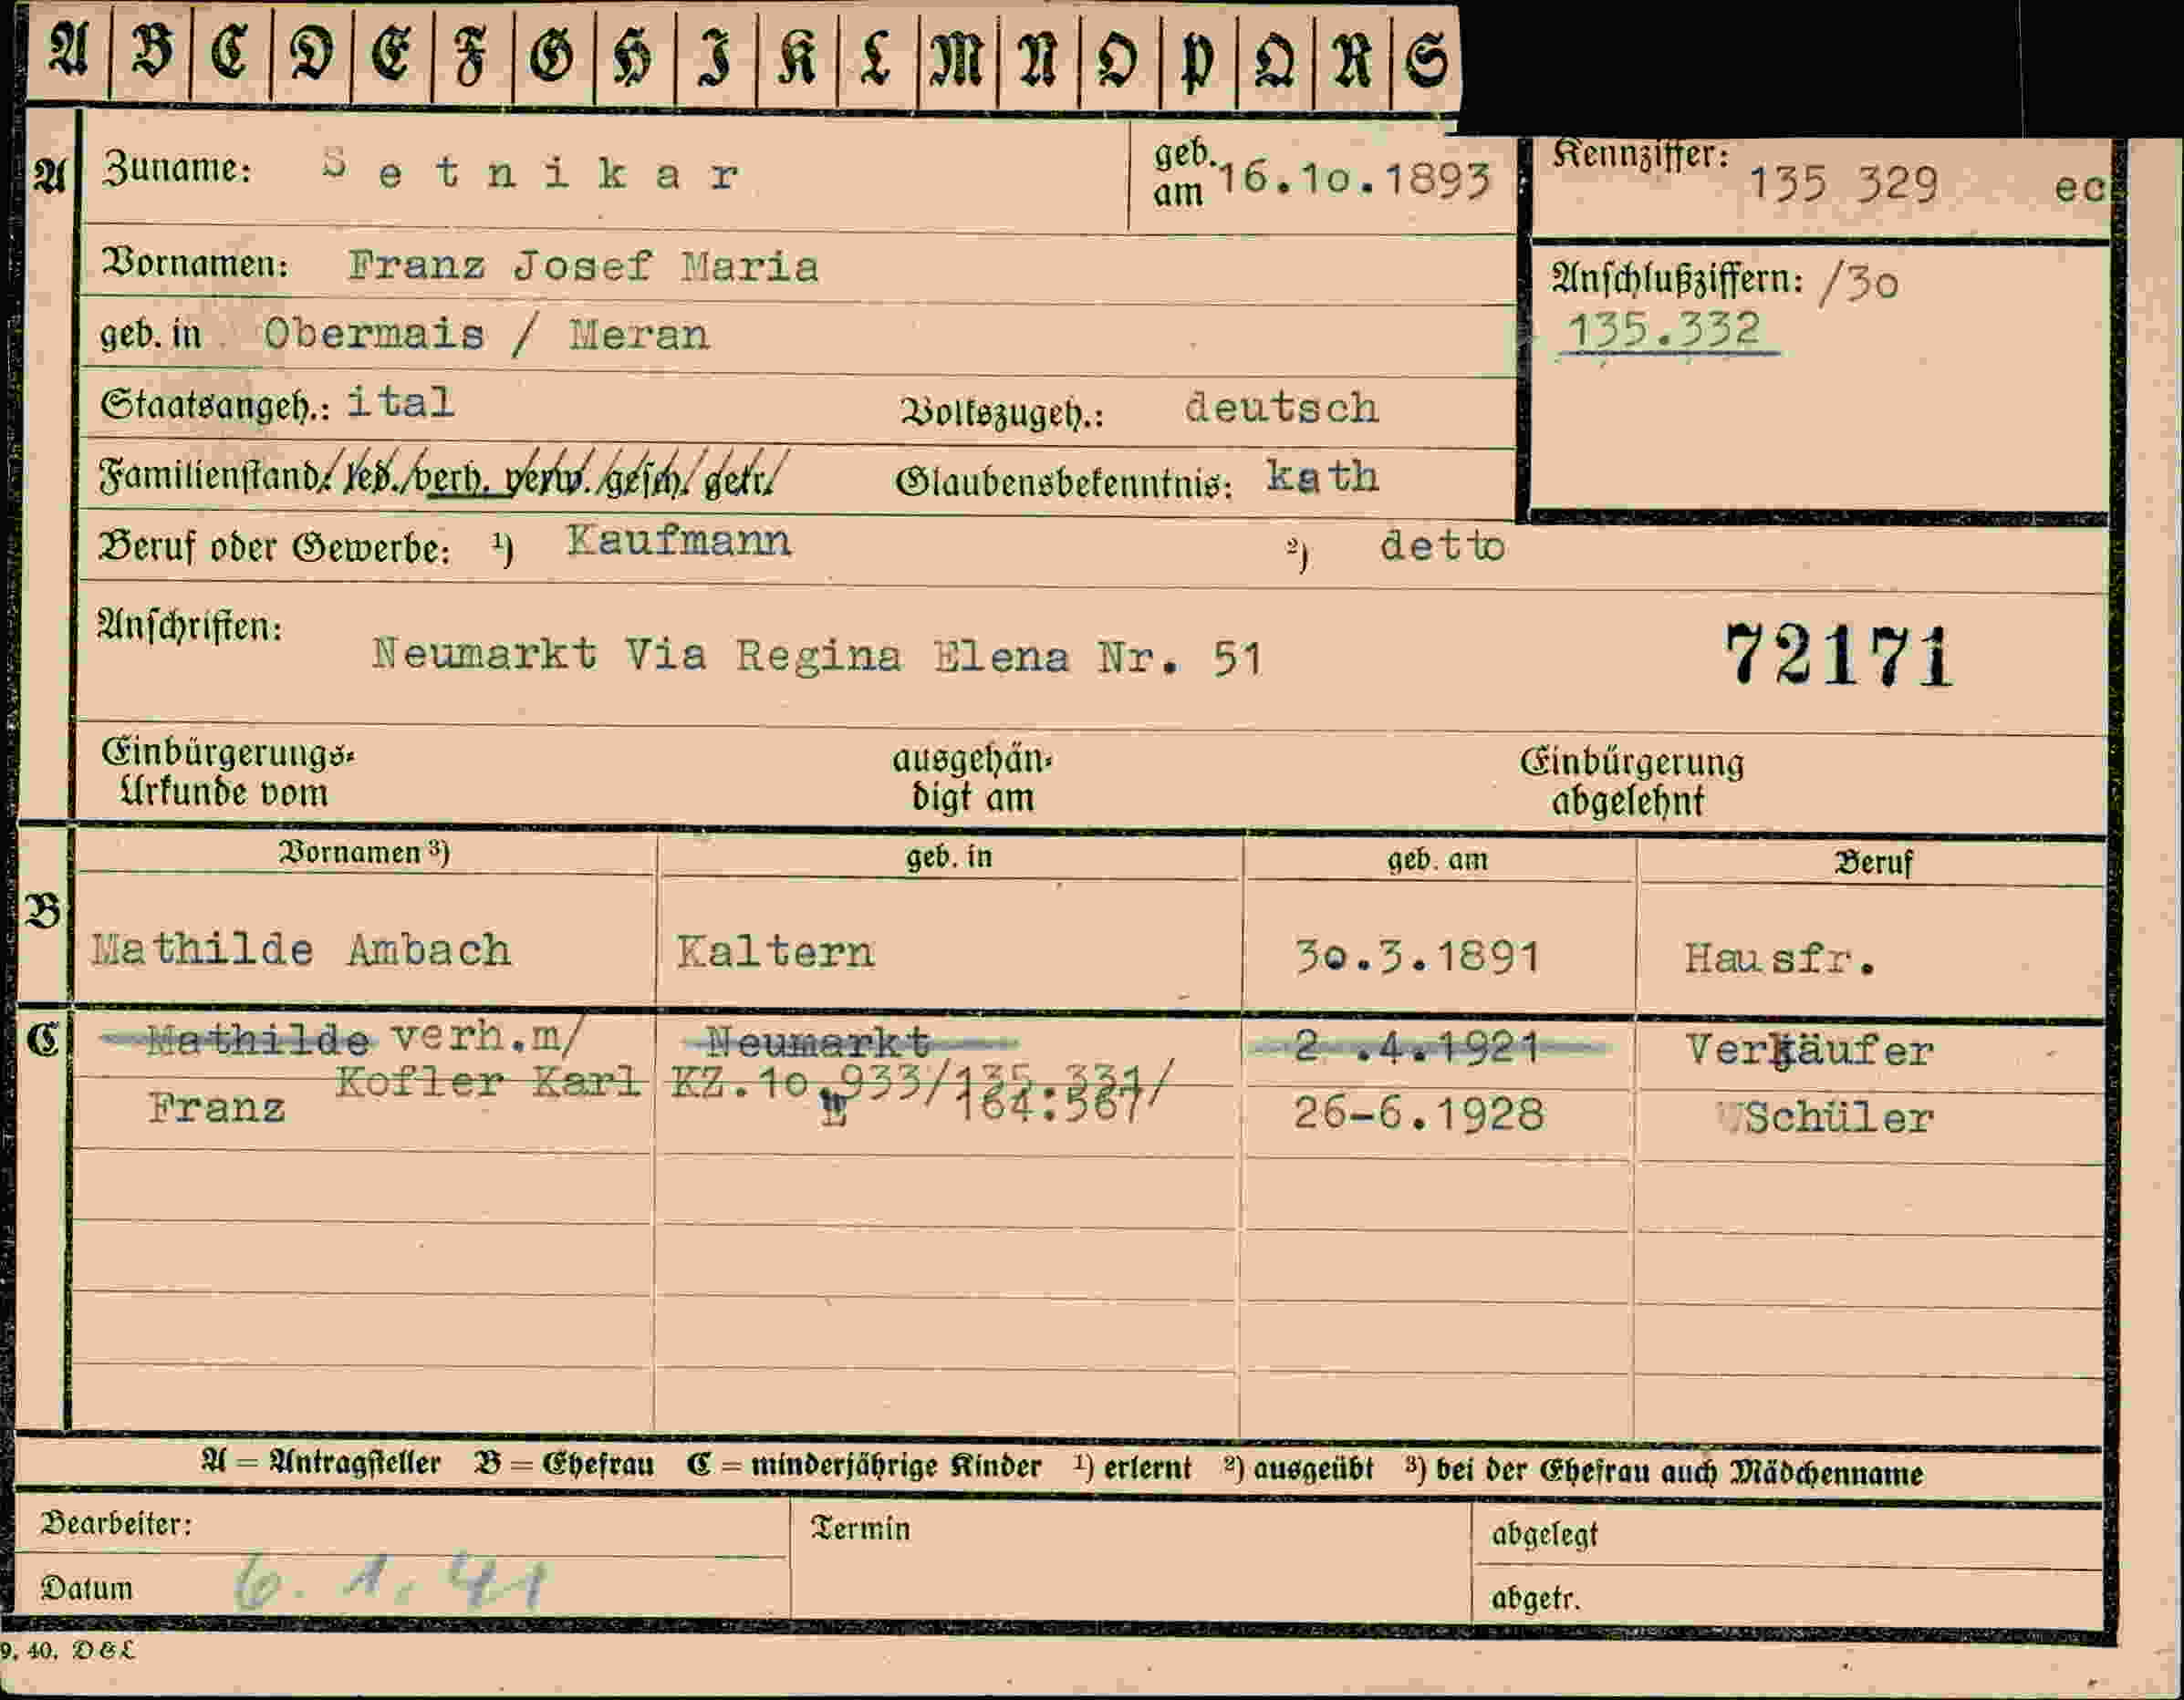 A B C D E F G H I K L M N O P Q R S
A Zuname: Setnikar geb. am 16.10.1893 Kennziffer: 135 329 ec
Vornamen: Franz Josef Maria Anschlußziffern: /30
geb. in Obermais / Meran 135.332
Staatsangeh.: ital Volkszugeh.: deutsch
Familienstand: led. verh. verw. gesch. getr. Glaubensbekenntnis: kath
Beruf oder Gewerbe: ¹) Kaufmann ²) detto
Anschriften: Neumarkt Via Regina Elena Nr. 51 72171
Einbürgerungs- ausgehän- Einbürgerung
Urkunde vom digt am abgelehnt
Vornamen ³) geb. in geb. am Beruf
B Mathilde Ambach Kaltern 30.3.1891 Hausfr.
C Mathilde verh.m/ Neumarkt 2 .4.1921 Verkäufer
Kofler Karl KZ.10.933/
Franz 26-6.1928 Schüler
A = Antragsteller B = Ehefrau C = minderjährige Kinder ¹) erlernt ²) ausgeübt ³) bei der Ehefrau auch Mädchenname
Bearbeiter: Termin abgelegt
Datum 6. 1. 41 abgetr.
9. 40. D & L